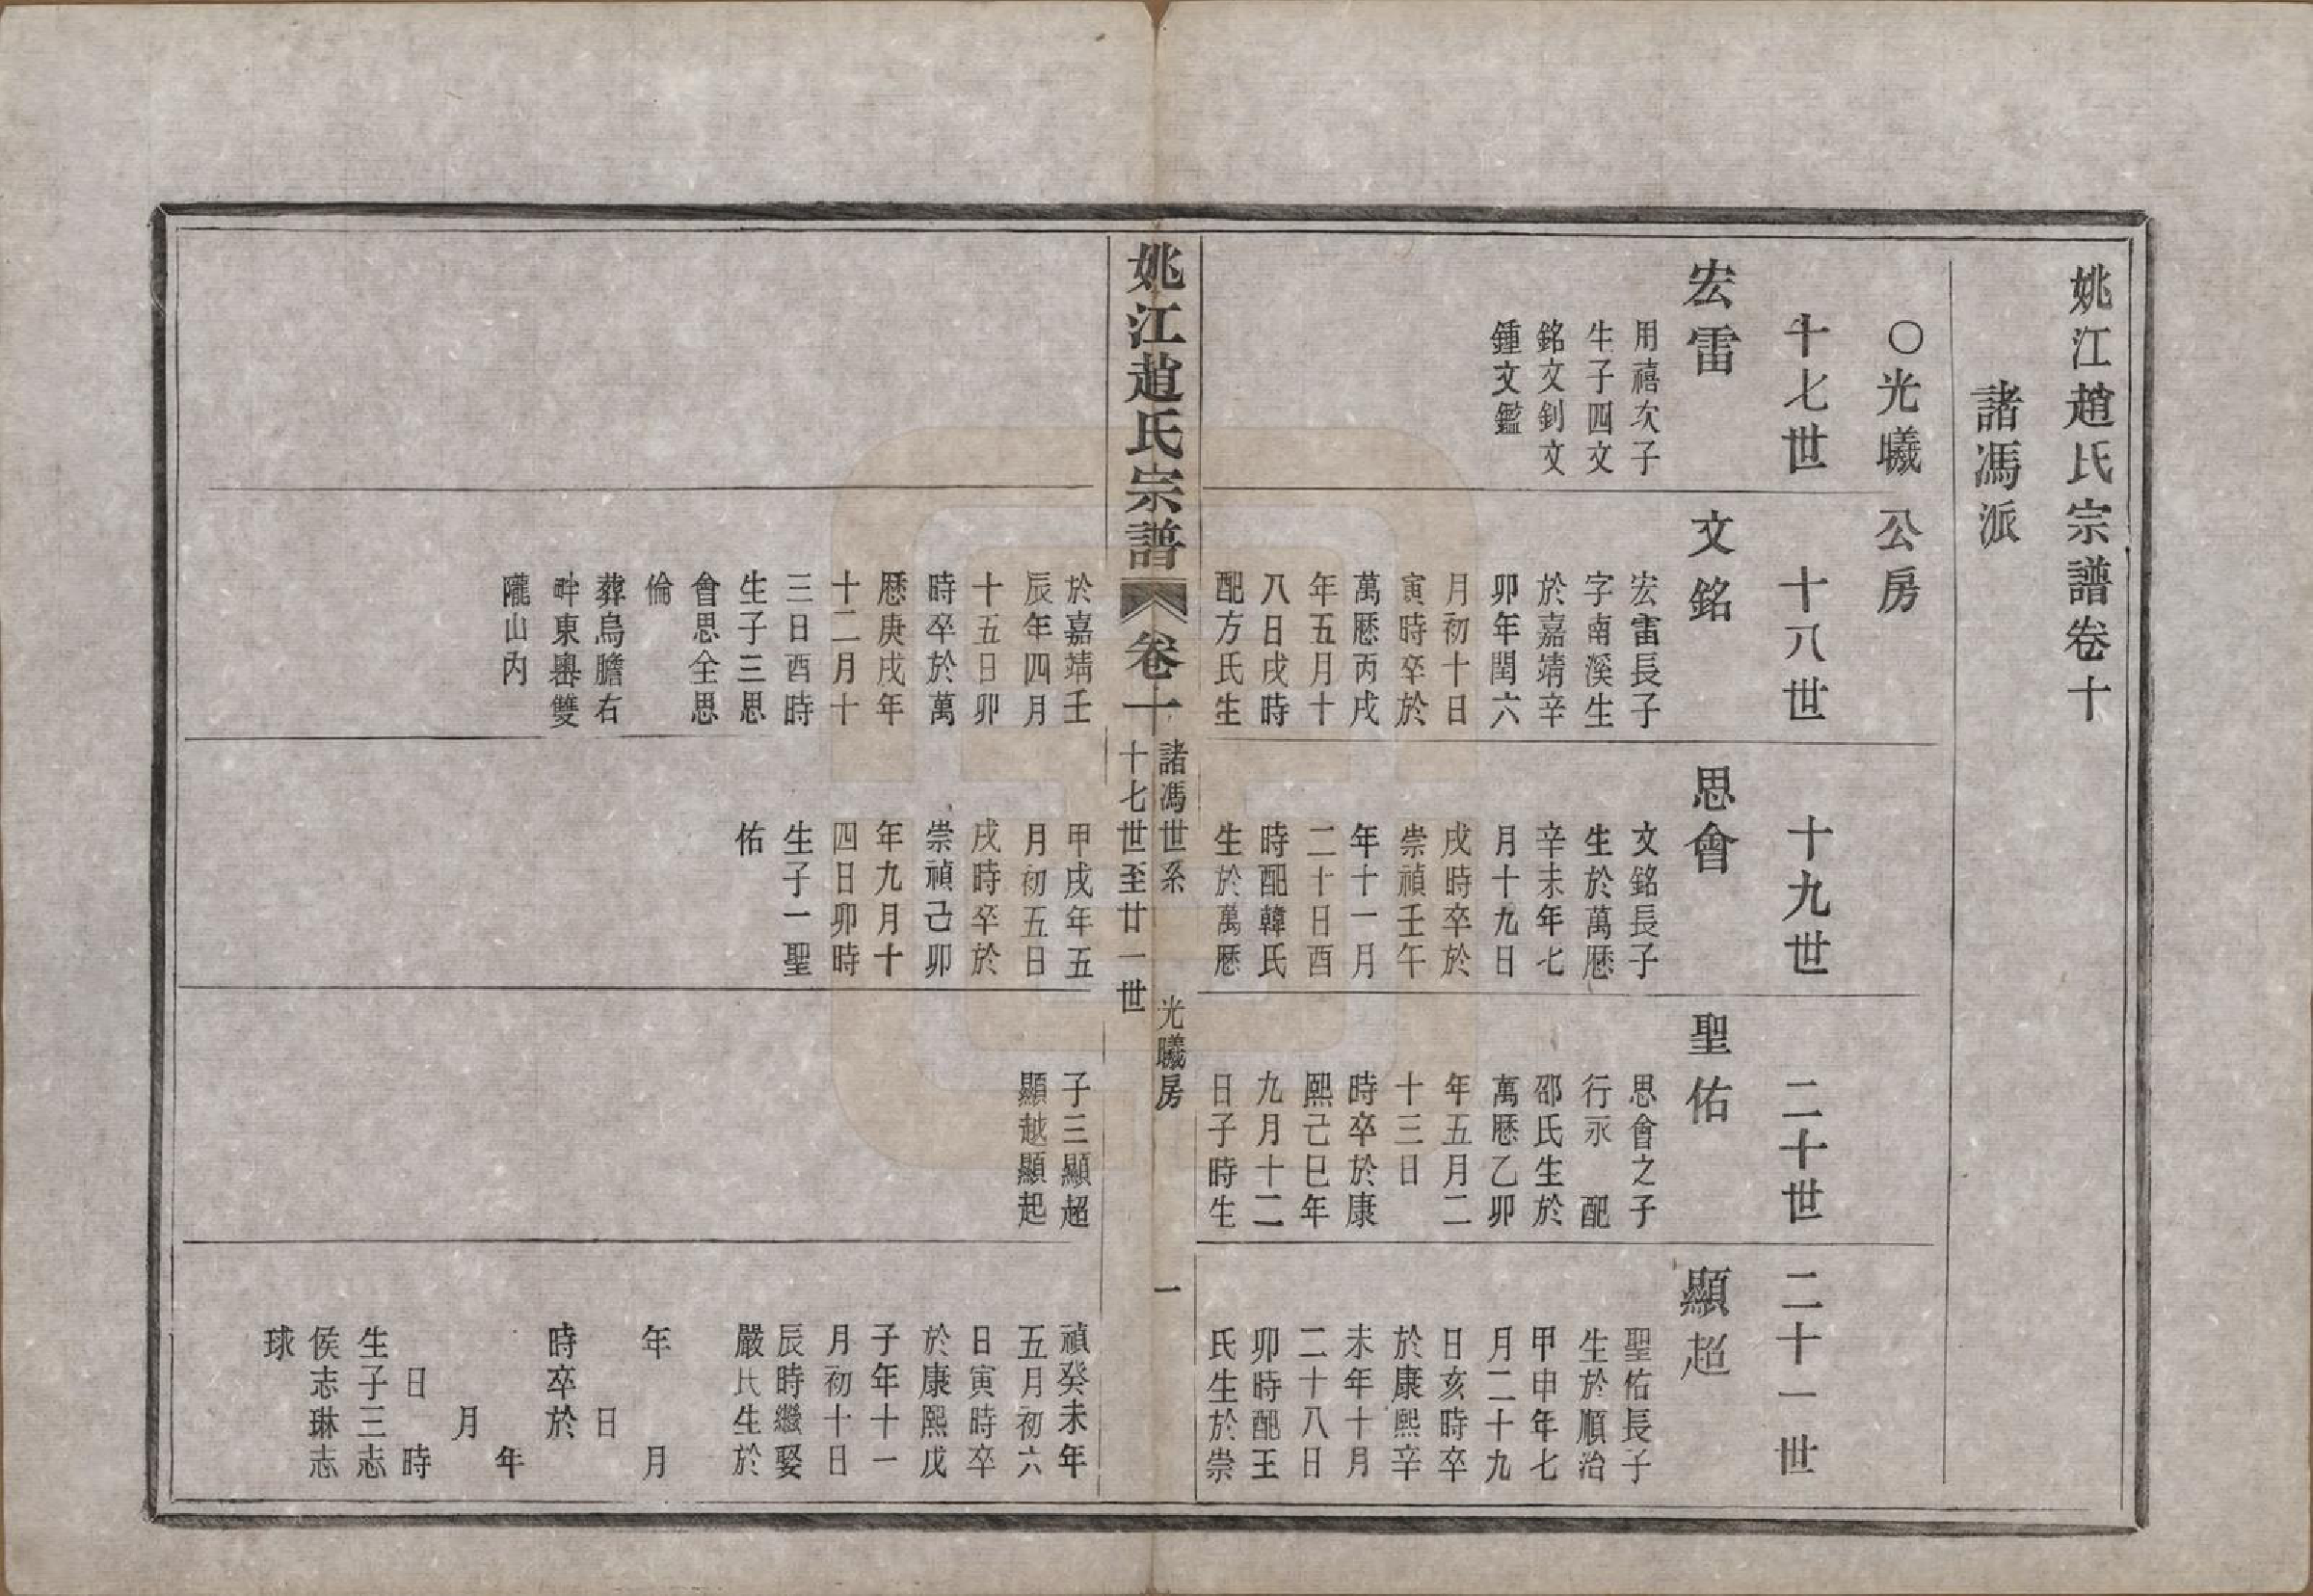 姚江趙氏宗譜卷十
諸馮派
○光曦公房
十七世
十八世
十九世
二十世
二十一世
宏雷
用禧次子
生子四文
銘文釗文
鍾文鑑
文銘
宏雷長子
字南溪生
於嘉靖辛
卯年閏六
月初十日
寅時卒於
萬厯丙戌
年五月十
八日戌時
配方氏生
於嘉靖壬
辰年四月
十五日卯
時卒於萬
厯庚戌年
十二月十
三日酉時
生子三思
會思全思
倫
葬烏膽右
畔東嶴雙
隴山內
思會
文銘長子
生於萬厯
辛未年七
月十九日
戌時卒於
崇禎壬午
年十一月
二十日酉
時配韓氏
生於萬厯
甲戌年五
月初五日
戌時卒於
崇禎己卯
年九月十
四日卯時
生子一聖
佑
聖佑
思會之子
行永 配
邵氏生於
萬厯乙卯
年五月二
十三日
時卒於康
熙己巳年
九月十二
日子時生
子三顯超
顯越顯起
顯超
聖佑長子
生於順治
甲申年七
月二十九
日亥時卒
於康熙辛
未年十月
二十八日
卯時配王
氏生於崇
禎癸未年
五月初六
日寅時卒
於康熙戊
子年十一
月初十日
辰時繼娶
嚴氏生於
年 月
日
時卒於
年
月
日 時
生子三志
侯志琳志
球
姚江趙氏宗譜 卷十
諸馮世系 光曦房
十七世至廿一世
一